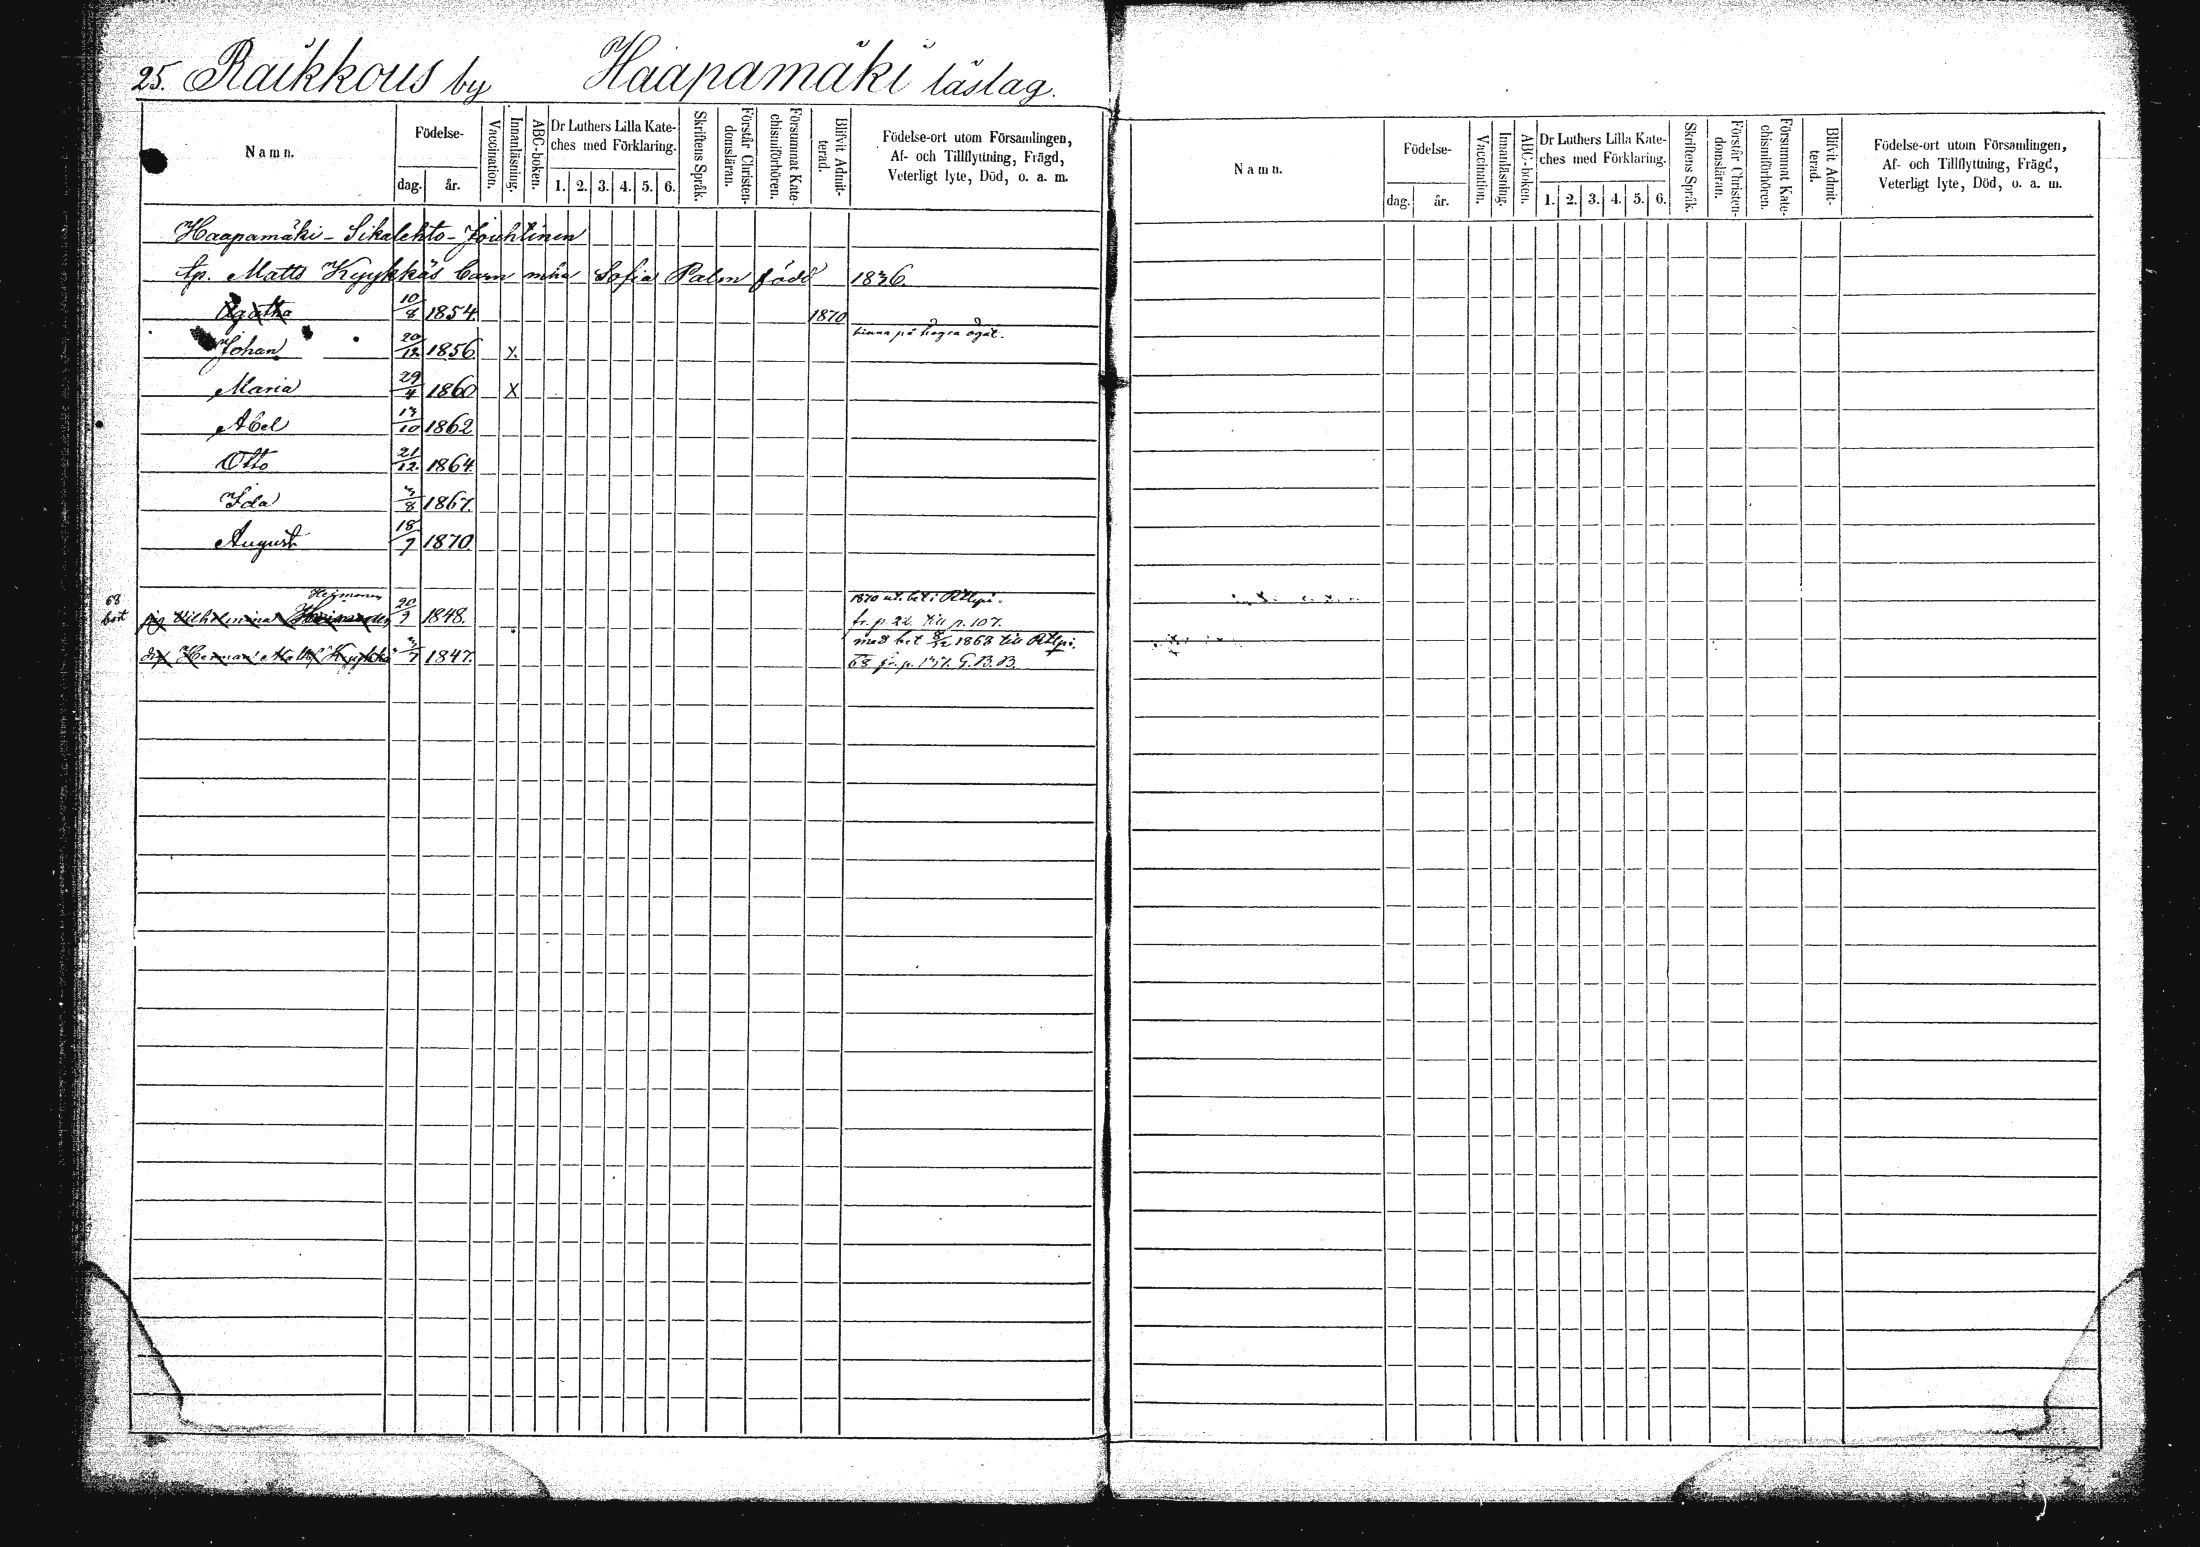 25. Räikkous by Haapamäki läslag.
Namn.
Födelse-
dag. år.
Vaccination.
Innanläsning.
ABC-boken.
Dr Luthers Lilla Kate-
ches med Förklaring.
1. 2. 3. 4. 5. 6.
Skriftens Språk.
Förstår Christen-
domsläran.
Försummat Kate-
chismiförhören.
Blifvit Admit-
terad.
Födelse-ort utom Församlingen,
Af- och Tillflyttning, Frägd,
Veterligt lyte, Död, o. a. m.
Haapamäki - Sikalehto - Jouhtinen
tp. Matts Kyykkäs barn m Sofia Palm född 1836.
Agatha 10/8 1854. 1870
hinna på högra ögat.
Johan 20/12 1856 x.
Maria 29/4 1860 x
Abel 13/10 1862
Otto 21/12 1864.
Ida 3/8 1867.
August 18/7 1870.
68
bet
pig Vilhelmina 20/9 1848.
1870 ut. bet i
fr. p. 22. till p. 107.
drg Herman Matts Kyykkä 3/7 1847.
med bet 8/12 1868 till
68 fr. p. 137. G.B.B.
Namn.
Födelse-
dag. år.
Vaccination.
Innanläsning.
ABC-boken.
Dr Luthers Lilla Kate-
ches med Förklaring.
1. 2. 3. 4. 5. 6.
Skriftens Språk.
Förstår Christen-
domsläran.
Försummat Kate-
chismiförhören.
Blifvit Admit-
terad.
Födelse-ort utom Församlingen,
Af- och Tillflyttning, Frägd,
Veterligt lyte, Död, o. a. m.